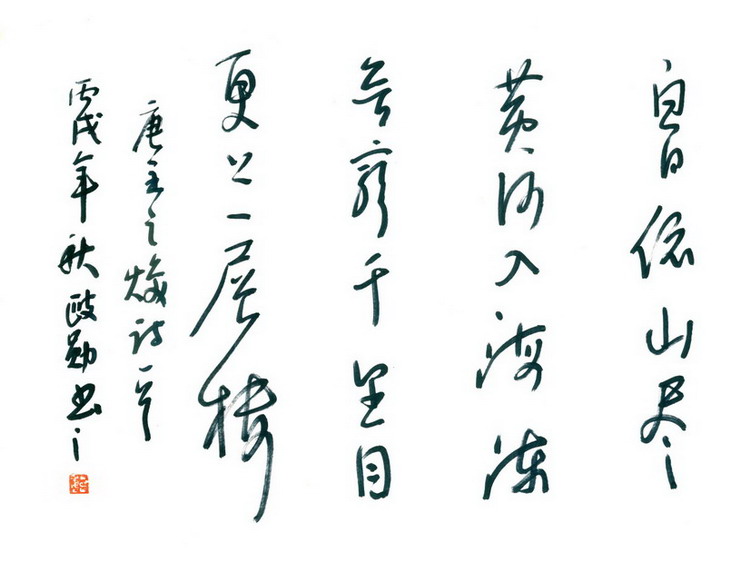 白日依山尽
黄河入海流
欲穷千里目
更上一层楼
唐王之焕诗一首
丙戌年秋 勋书